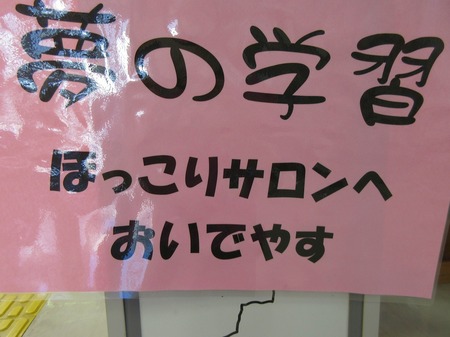 夢の学習
ほっこりサロンへ
おいでやす